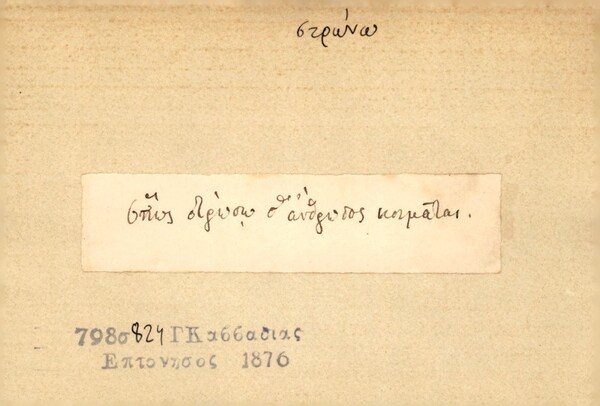 στρώνω
ὅπως στρώσῃ ὁ ἄνθρωπος κοιμᾶται.
798σ824 ΓΚασσαδιας
Επτονησος 1876